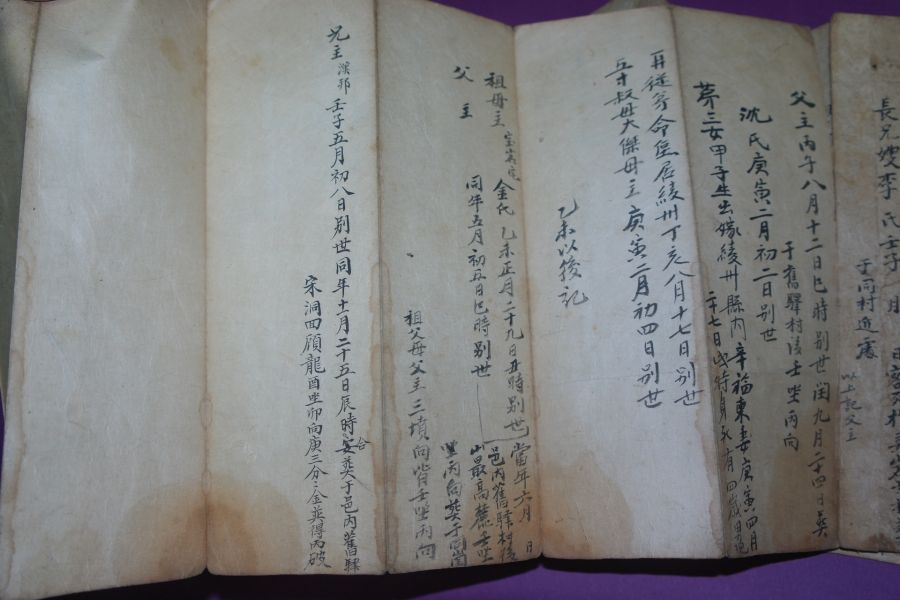 長兄嫂李氏壬子 月 日
于同村近處
以上記父主
父主丙午八月十二日巳時別世閏九月二十四日葬
于舊驛村後壬坐丙向
沈氏庚寅二月初二日別世
第三女甲子生出嫁綾州縣內辛福東妻庚寅四月
二十七日
再從 命 居綾州丁亥八月十七日別世
五寸叔母大傑母主庚寅二月初四日別世
乙未以後記
祖母主 金氏乙未正月二十九日丑時別世當年六月 日
邑內舊驛村後
父主 同年五月初五日巳時別世 山最高麓壬坐
丙向葬于同崗
祖父母父主三墳向皆壬坐丙向
兄主 壬子五月初八日別世同年十一月二十五日辰時安葬于邑內舊驛
宋洞回顧龍酉坐卯向庚三分金葬得丙破